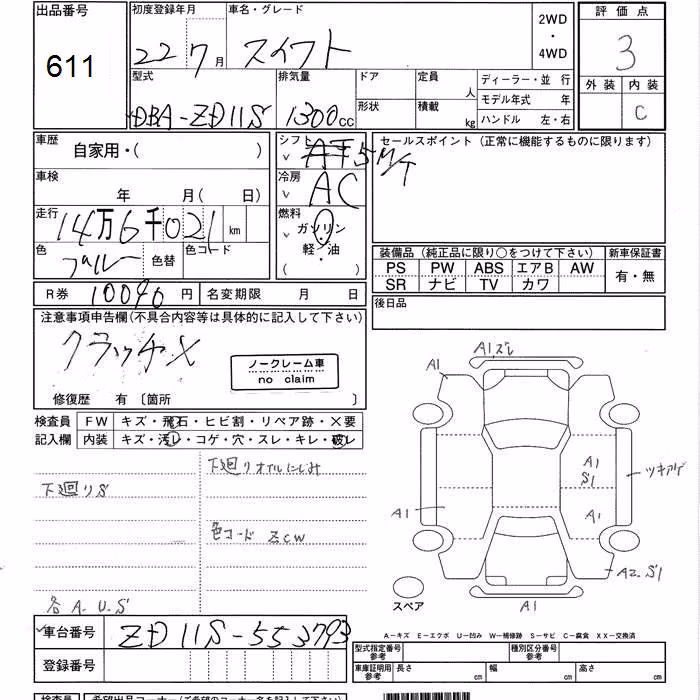 出品番号
611
初度登録年月
22 7月
車名・グレード
スイフト
2WD
・
4WD
評価点
3
外装 内装
C
型式
DBA-ZD11S
排気量
1300cc
ドア
形状
定員
人
積載
kg
ディーラー・並 行
モデル年式 年
ハンドル 左・右
車歴
自家用・( )
車検
年 月( 日)
走行
14万6千021 km
色
ブルー
色替
色コード
シフト
AT 5M/T
冷房
AC
燃料
ガソリン
軽・油
( )
セールスポイント (正常に機能するものに限ります)
装備品 (純正品に限り○をつけて下さい)
PS PW ABS エアB AW
SR ナビ TV カワ
新車保証書
有・無
R券 10090円
名変期限 月 日
後日品
注意事項申告欄(不具合内容等は具体的に記入して下さい)
クラッチX
ノークレーム車
no claim
修復歴 有 〔箇所 〕
検査員 FW キズ・飛石・ヒビ割・リペア跡・×要
記入欄 内装 キズ・汚レ・コゲ・穴・スレ・キレ・破レ
下廻りオイルにじみ
下廻りS
色コード ZCW
各A.U.S
A1ズレ
A1
A1
S1
ツキアゲ
A1
A1
A2.S1
A1
スペア
A-キズ E-エクボ U-凹み W-補修跡 S-サビ C-腐食 XX-交換済
車台番号 ZD11S-553793
登録番号
型式指定番号
参考
種別区分番号
参考
車庫証明用
参考
長さ cm 幅 cm 高さ cm
検査員
希望出品コーナー(ご希望のコーナー名を記入して下さい)